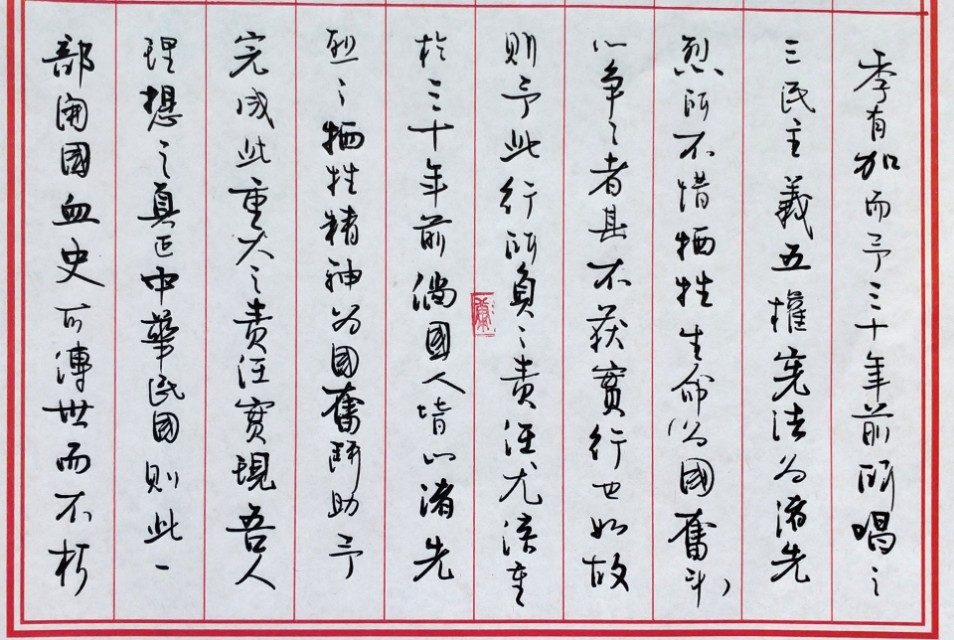 季有加而予三十年前所唱之
三民主義五權憲法为诸先
烈所不惜牺牲生命(为國奮斗)
以争之者其不获實行也如故
则予此行所負之責任尤倍重
於三十年前倘國人皆以诸先
烈之牺牲精神为國奮鬥助予
完成此重大之責任實現吾人
理想之真正中華民國则此一
部開國血史可傳世而不朽